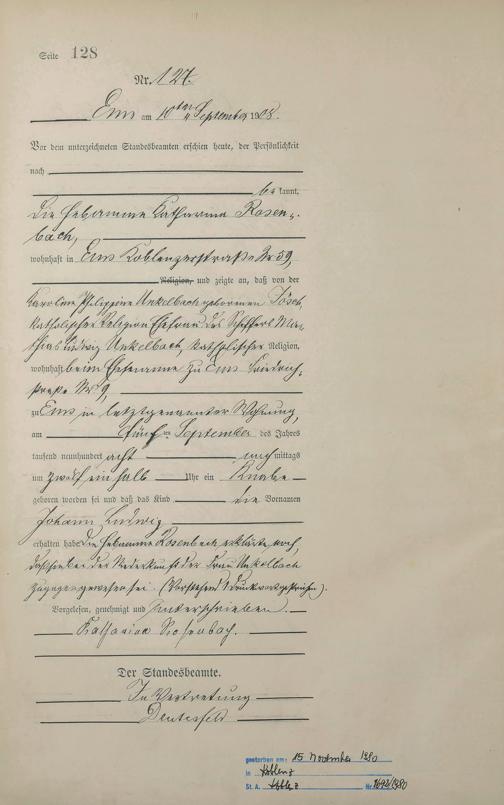 Seite 128
Nr. 127.
Ems am 10ten September 1908.
Vor dem unterzeichneten Standesbeamten erschien heute, der Persönlichkeit
nach
bekannt,
die Hebamme Katharina Rosen-
bach,
wohnhaft in Ems Koblenzerstraße Nr 59,
Religion, und zeigte an, daß von der
Karoline Philippine Unkelbach geborenen
katholischer Religion Ehefrau des Schiffers Mat-
thias Ludwig Unkelbach, katholischer Religion,
wohnhaft beim Ehemanne zu Ems Friedrich-
straße Nr 9,
zu Ems in letztgenannter Wohnung,
am fünften September des Jahres
tausend neunhundert acht nachmittags
um zwölf einhalb Uhr ein Knabe
geboren worden sei und daß das Kind die Vornamen
Johann Ludwig
erhalten habe. Die Hebamme Rosenbach erklärte noch,
daß sie bei der Niederkunft der Frau Unkelbach
zugegen gewesen sei. (Vorstehend 1 Druckwort gestrichen).
Vorgelesen, genehmigt und unterschrieben.
Katharina Rosenbach.
Der Standesbeamte.
In Vertretung
gestorben am: 15 November 1980
in Koblenz
St. A. Koblenz Nr. 1692/1980